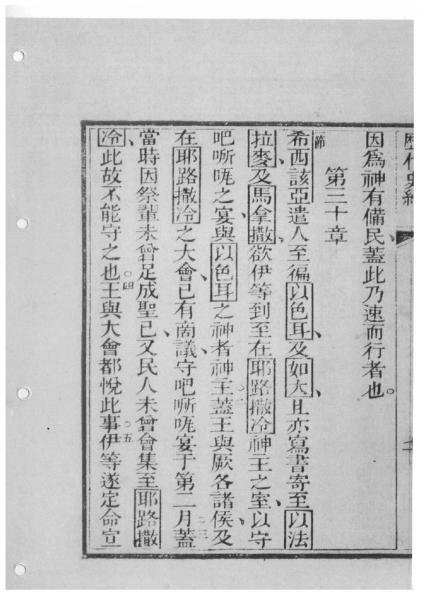 因爲神有備民蓋此乃速而行者也。
第三十章
節
希西該亞遣人至徧以色耳、及如大、且亦寫書寄至以法
拉麥、及馬拿撒、欲伊等到至在耶路撒冷神王之室以守
吧唽咓之宴、與以色耳之神者神王蓋王與厥各諸侯、及
在耶路撒冷之大會已有商議、守吧唽咓宴于第二月蓋
當時因祭輩未曾足成聖已、又民人未曾會集至耶路撒
冷、此故不能守之也○四王與大會都悅此事○五伊等遂定命宣